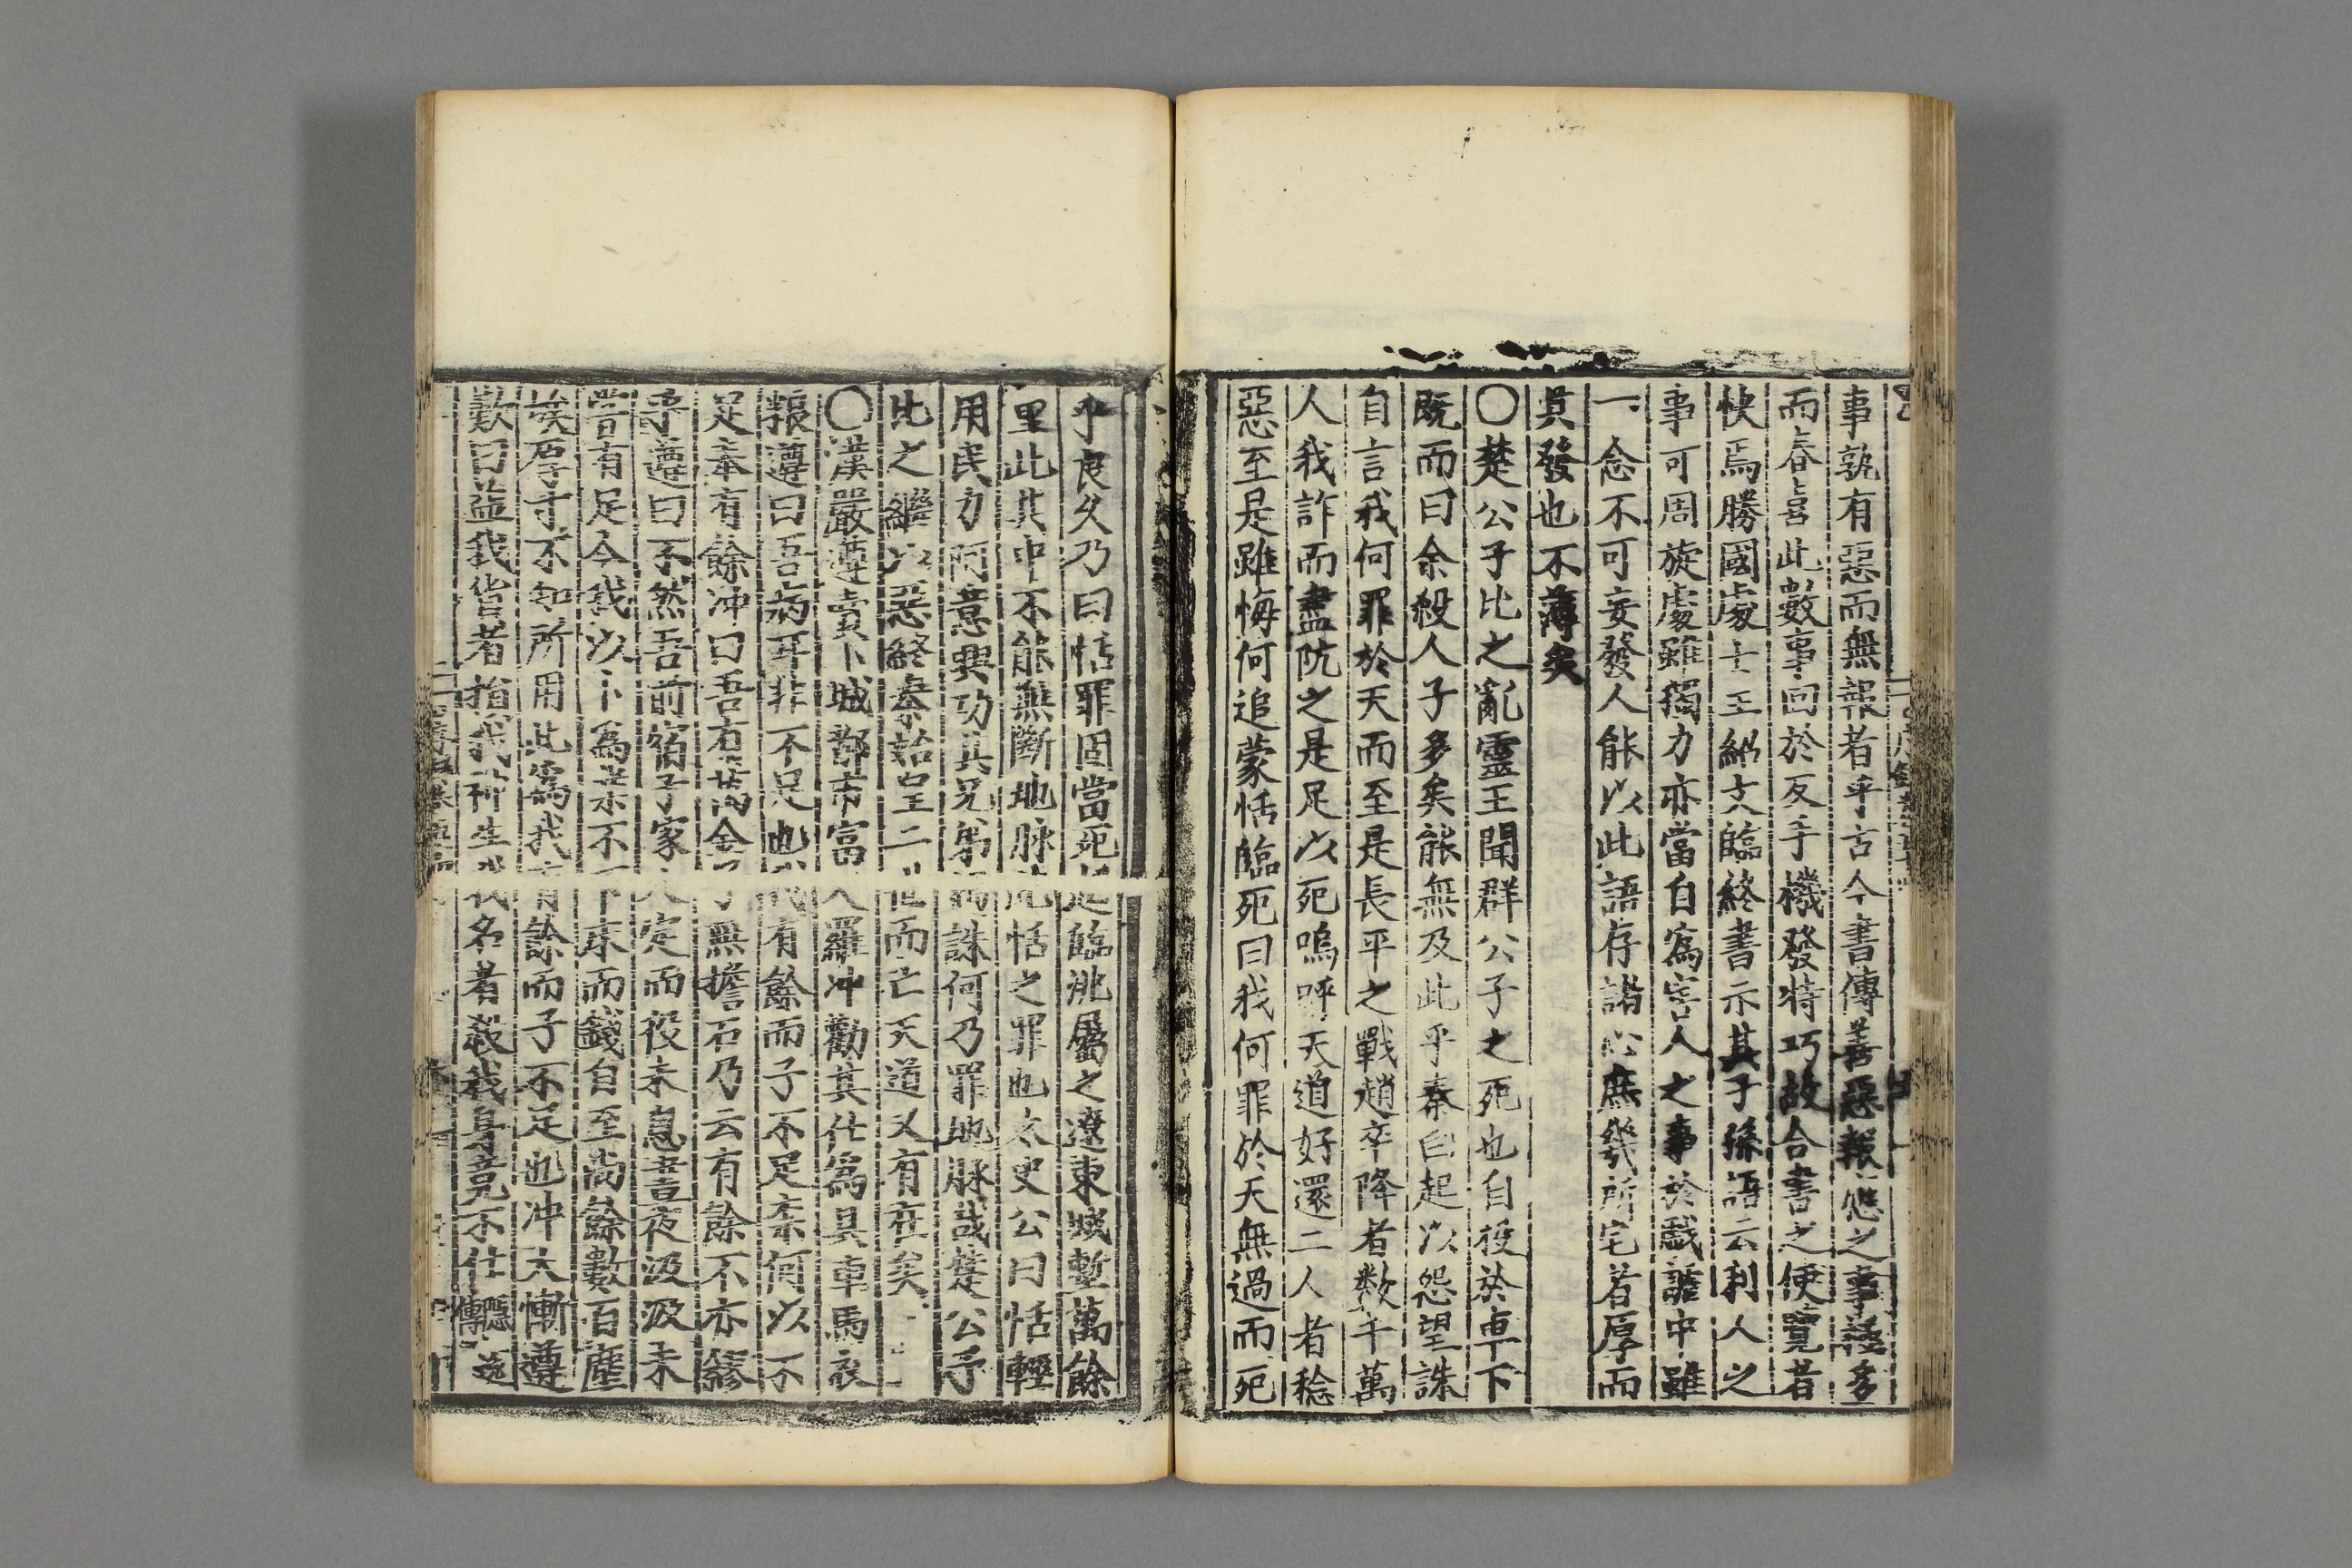 事孰有惡而無報者乎古今書傳善惡報應之事護多
而春喜此數事回於反手機發特巧故合書之使覽者
快焉勝國處士王紹文臨終書示其子孫語云利人之
事可周旋處雖獨力亦當自爲害人之事於戲謔中雖
一念不可妄發人能以此語存諸心庶幾所宅若厚而
其發也不薄矣
〇楚公子比之亂靈王聞群公子之死也自投於車下
既而曰余殺人子多矣能無及此乎秦白起以怨望誅
自言我何罪於天而至是長平之戰趙卒降者数十萬
人我詐而盡阬之是足以死嗚呼天道好還二人者稔
惡至是雖悔何追蒙恬臨死曰我何罪於天無過而死
乎良久乃曰恬罪固當死起臨洮屬之遼東城塹萬餘
里此其中不能無斷地脉此恬之罪也太史公曰恬輕
用民力阿意興功其兄弟遇誅何乃罪地脉哉楚公子
比之繼以惡終秦始皇二世而亡天道又有在矣
〇漢嚴遵賣卜城都市富人羅冲勸其仕爲具車馬衣
粮遵曰吾病耳非不足也我有餘而子不足柰何以不
足奉有餘冲曰吾有萬金子無擔石乃云有餘不亦繆
乎遵曰不然吾前宿子家人定而役未息晝夜汲汲未
嘗有足今我以卜爲業不下床而錢自至尚餘數百塵
埃厚寸不知所用此爲我有餘而子不足也冲大慚遵
歎曰益我貨者損我神生我名者殺我身竟不仕隱逸傳